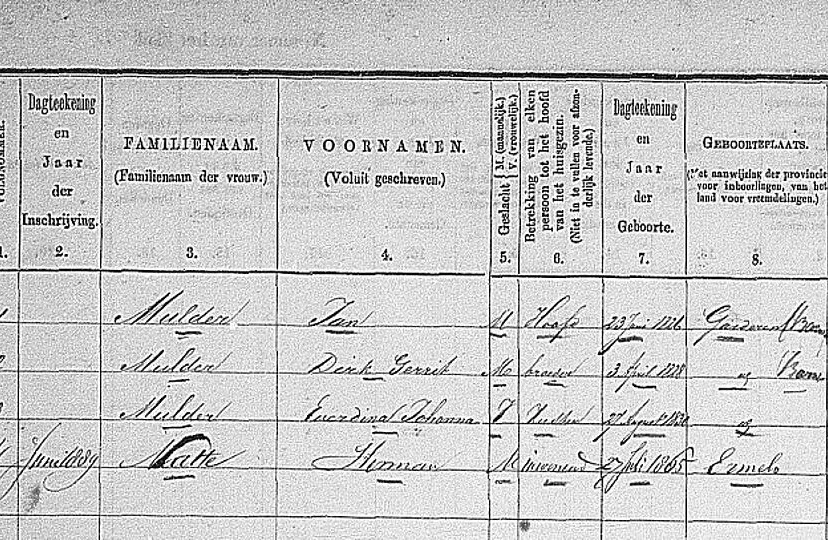 Dagteekening en Jaar der Inschrijving.
FAMILIENAAM.
(Familienaam der vrouw.)
VOORNAMEN.
(Voluit geschreven.)
Geslacht M. (mannelijk.) V. (vrouwelijk.)
Betrekking van elken persoon tot het hoofd van het huisgezin.
(Niet in te vullen voor afzonderlijk levende.)
Dagteekening en Jaar der Geboorte.
GEBOORTEPLAATS.
(Met aanwijzing der provincie voor inboorlingen, van het land voor vreemdelingen.)
1. 2. 3. 4. 5. 6. 7. 8.
Mulder Jan M Hoofd 23 1826 Garderen
Mulder Dirk Gerrit M broeder 3 April 1828
Mulder Everdina Johanna V Zuster 27 August 1830
1889 Matte Herman M inwonend 27 Juli 1865 Ermelo